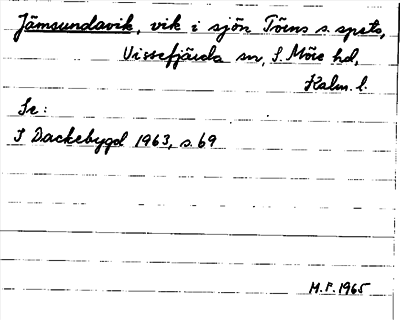 Jämsundavik, vik i sjön Törns s. spets,
Vissefjärda sn, S. Möre hd,
Kalm. l.
Se:
I Dackebygd 1963, s. 69
M.P. 1965